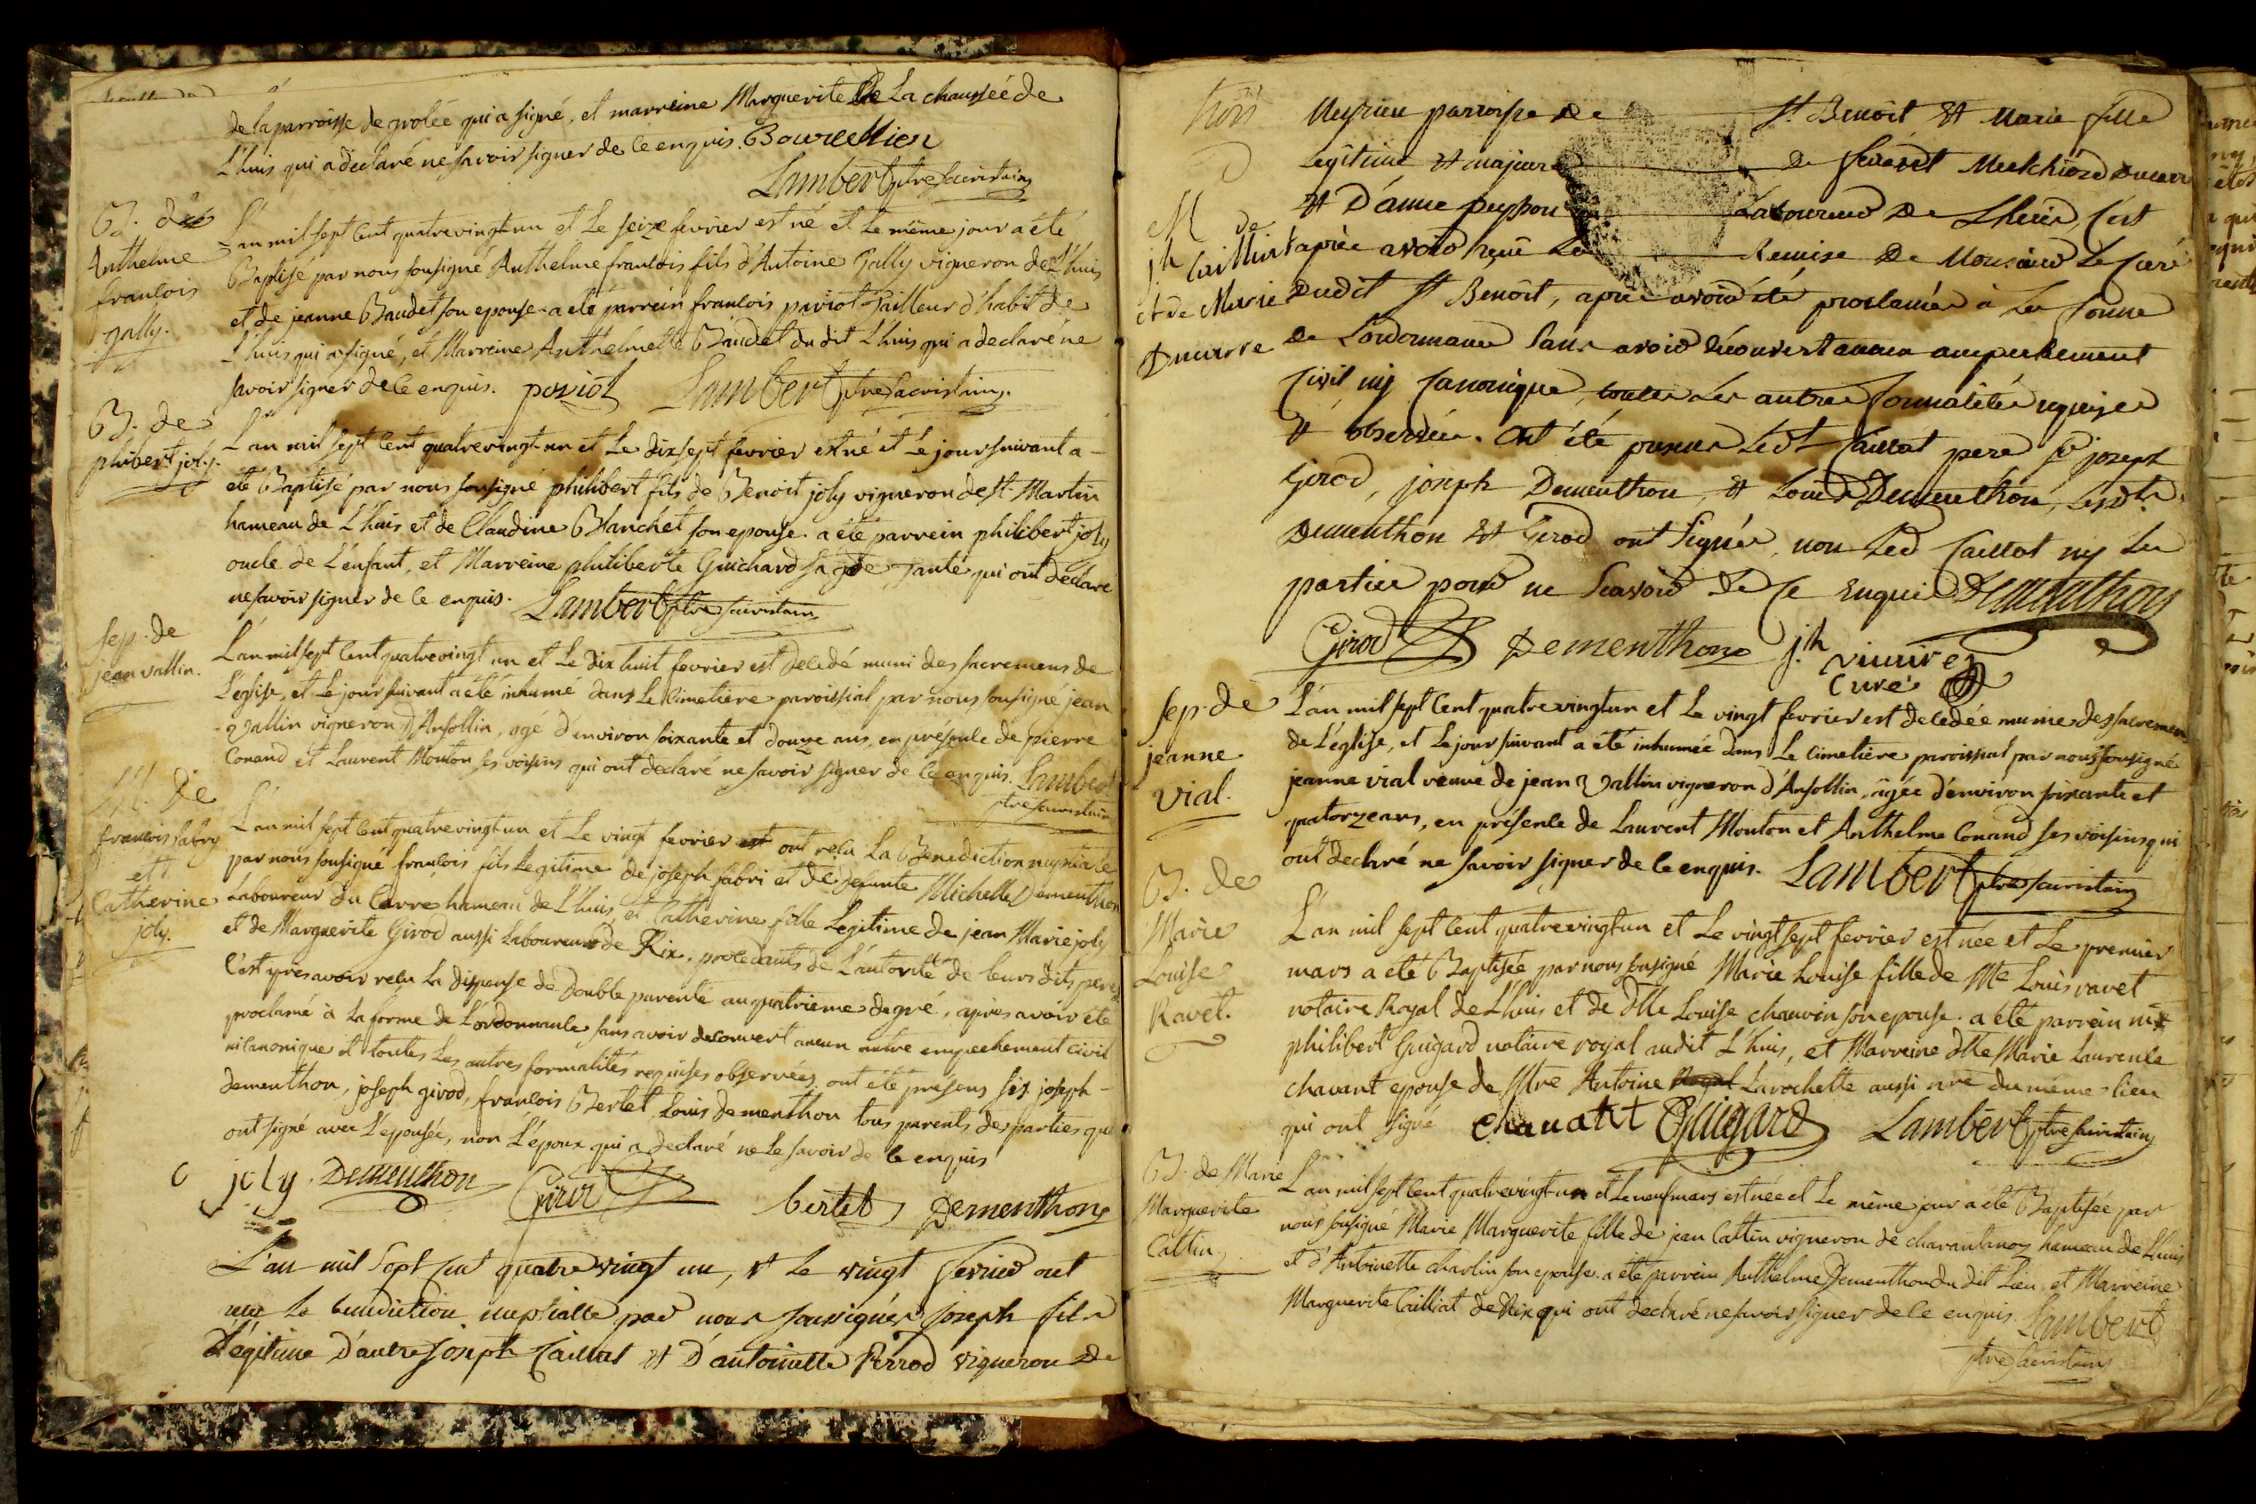 de la parroisse de grolée qui a signé, et marreine Marguerite De La chaussée de
L'huis qui a declaré ne savoir signer de ce enquis. Bourcellier
Lambert ptre sacristain
B. de
Anthelme
francois
gally.
L'an mil sept cent quatre vingt un et Le seize fevrier est né et Le même jour a été
Baptisé par nous sousigné Anthelme francois fils d'Antoine Gally vigneron de L'huis
et de jeanne Baudet son epouse. a eté parrein francois paviot Tailleur d'habit de
L'huis qui a signé, et Marreine Anthelmette Baudet du dit L'huis qui a declaré ne
savoir signer de ce enquis. paviot Lambert ptre sacristain.
B. de
philibert joly.
L'an mil sept cent quatre vingt un et Le dix sept fevrier est né et Le jour suivant a
été Baptisé par nous sousigné philibert fils de Benoit joly vigneron de St. Martin
hameau de L'huis et de Claudine Blanchet son epouse. a été parrein philibert joly
oncle de L'enfant, et Marreine philiberte Guichard sa gde Tante qui ont declaré
ne savoir signer de ce enquis. Lambert ptre sacristain
sep. de
jean vallin.
L'an mil sept cent quatre vingt un et Le dix huit fevrier est decedé muni des sacremens de
L'église, et Le jour suivant a été inhumé dans Le Cimetière paroissial par nous sousigné jean
Vallin vigneron d'Ansollin, agé d'environ soixante et douze ans, en présence de pierre
Conand et Laurent Mouton ses voisins qui ont declaré ne savoir signer de ce enquis. Lambert
ptre sacristain
M. de
francois fabry
et
Catherine
joly.
L'an mil sept cent quatre vingt un et Le vingt fevrier est ont reçu La Benediction nuptiale
par nous sousigné françois fils Legitime de joseph fabri et de defunte Michelle Dementhon
Laboureur du Cavre hameau de L'huis, et Catherine fille Legitime de jean Marie joly
et de Marguerite Girod aussi Laboureur de Rix. procedants de L'autorité de leurs dits peres
c'est après avoir reçu La dispense de double parenté au quatrième degré, après avoir été
proclamé à La forme de L'ordonnance sans avoir decouvert aucun autre empechement civil
ni canonique et toutes Les autres formalités requises observées. ont été présens Srs. joseph
dementhon, joseph girod, francois Bertet, Louis dementhon tous parents des parties qui
ont signé avec L'epousée, non L'époux qui a declaré ne Le savoir de ce enquis
joly Dementhon Girod bertet Dementhon
L'an mil sept cent quatre vingt un, et Le vingt fevrier ont
reçu La benediction nuptialle par nous soussignés joseph fils
Légitime D'autre joseph Caillat et D'antoinette Perrod vigneron de
hors
M de
jh Caillat
et de Marie
Ducarre
Meyrieu parroisse De St. Benoit et Marie fille
Legitime et majeure De feu sieur Melchiord Ducarre
et D'anne peyson Laboureur De Lhuis, C'est
après avoir reçu La Remise De Monsieur Le Curé
Dudit St Benoît, après avoir été proclamés à La forme
De L'ordonnance Sans avoir découvert aucun ampechement
Civil ny Canonique, toutes Les autres formalités requises
et observées. Ont été presens Ledt Caillat pere Sr joseph
Girod, joseph Dementhon, et Louis Dementhon, Lesdts
Dementhon et Girod ont Signés, non Led Caillat ny Les
parties pour ne Scavoir De Ce Enquis Dementhon
Girod Dementhon jth
Curé
sep. de
jeanne
vial.
L'an mil sept cent quatre vingt un et Le vingt fevrier est decedée munie des sacremens
de L'église, et Le jour suivant a été inhumée dans Le cimetière paroissial par nous sousigné
jeanne vial veuve de jean Vallin vigneron d'Ansollin, agée d'environ soixante et
quatorze ans, en présence de Laurent Mouton et Anthelme Conand ses voisins qui
ont declaré ne savoir signer de ce enquis. Lambert ptre sacristain
B. de
Marie
Louise
Ravet.
L'an mil sept cent quatre vingt un et Le vingt sept fevrier est née et Le premier
mars a été Baptisée par nous sousigné Marie Louise fille de Me Louis ravet
notaire Royal de L'huis et de dlle Louise chauvin son epouse. a été parrein me
philibert Guigard notaire royal audit L'huis, et Marreine dlle Marie Laurence
chavant epouse de Mtre Antoine Royal Larochette aussi nre du même lieu
qui ont signé chavant Guigard Lambert ptre sacristain
B. de Marie
Marguerite
Cattin
L'an mil sept cent quatre vingt un et Le neuf mars est née et Le même jour a été Baptisée par
nous sousigné Marie Marguerite fille de jean Cattin vigneron de charantanoz hameau de L'huis
et d'Antoinette charlin son epouse. a été parrein Anthelme Dementhon du dit Lieu, et Marreine
Marguerite Cailliat de Rix qui ont declaré ne savoir signer de ce enquis. Lambert
ptre sacristain